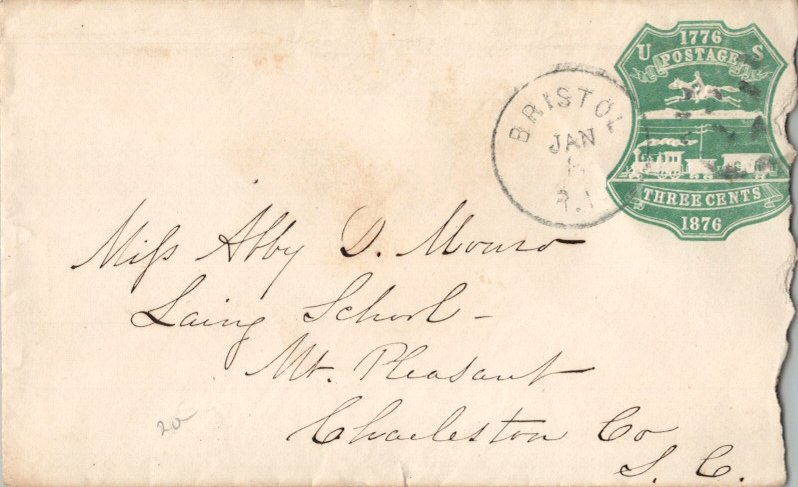 1776
U S
POSTAGE
THREE CENTS
1876
BRISTOL
JAN
R.I.
Miss Abby D. Monro
Laing School –
Mt. Pleasant
Charleston Co
S. C.
20